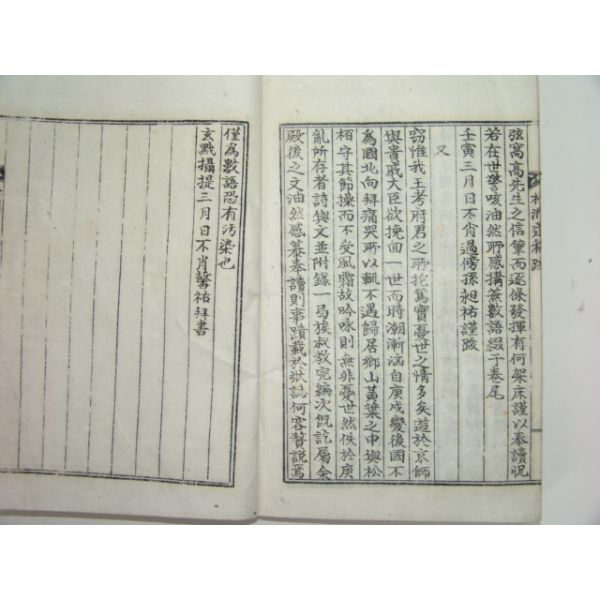 弦窩高先生之信筆而逐條發揮有何架床謹以奉讀怳
若在世警咳油然所感搆蕪數語綴于卷尾
壬寅三月日不肖過傍孫昶祐謹跋
又
窃惟我王考府君之所抱篤實憂世之情多矣遊於京師
與貴戚大臣欲挽回一世而時潮漸涵自庚戌變後國不
為國北向拜痛哭所以軌不遇歸居鄉山黃葉之中與松
栢守其節操而不受風霜故吟咏則無非憂世然佚於庚
亂所存者詩與文並附錄一弓族叔敎完編次旣訖屬余
殿後之文油然感慕奉讀則事蹟載於狀誌何容贅說焉
僅為數語恐有汚染也
玄黓攝提三月日不肖馨祐拜書